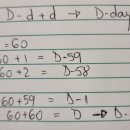 D-d+d → D-day
=60
60+1 = D-59
60+2 = D-58
60+59 = D-1
=60+60 = D → D-